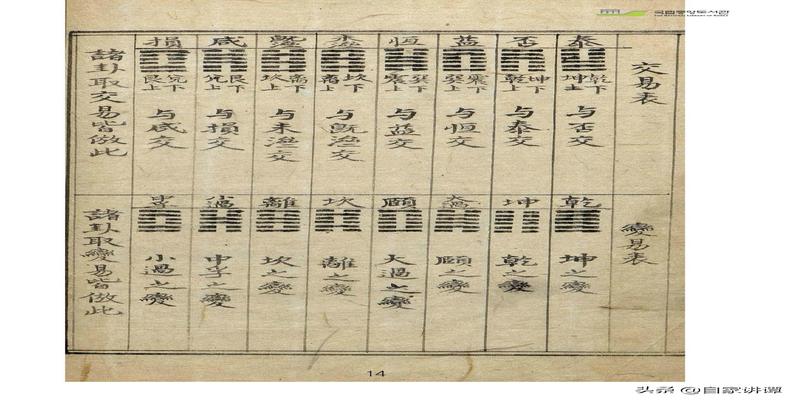 국립중앙도서관
THE NATIONAL LIBRARY OF KOREA
交易表
泰
乾下
坤上
与否交
否
坤下
乾上
与泰交
益
震下
巽上
与恒交
恒
巽下
震上
与益交
坎下
离上
与既濟交
离下
坎上
与未濟交
咸
艮下
兌上
与損交
損
兌下
艮上
与咸交
諸卦取交易皆倣此
變易表
乾
坤之變
坤
乾之變
頤之變
頤
大過之變
坎
離之變
離
坎之變
小過
中孚之變
小過之變
諸卦取變易皆倣此
14
头条 @自家讲谭